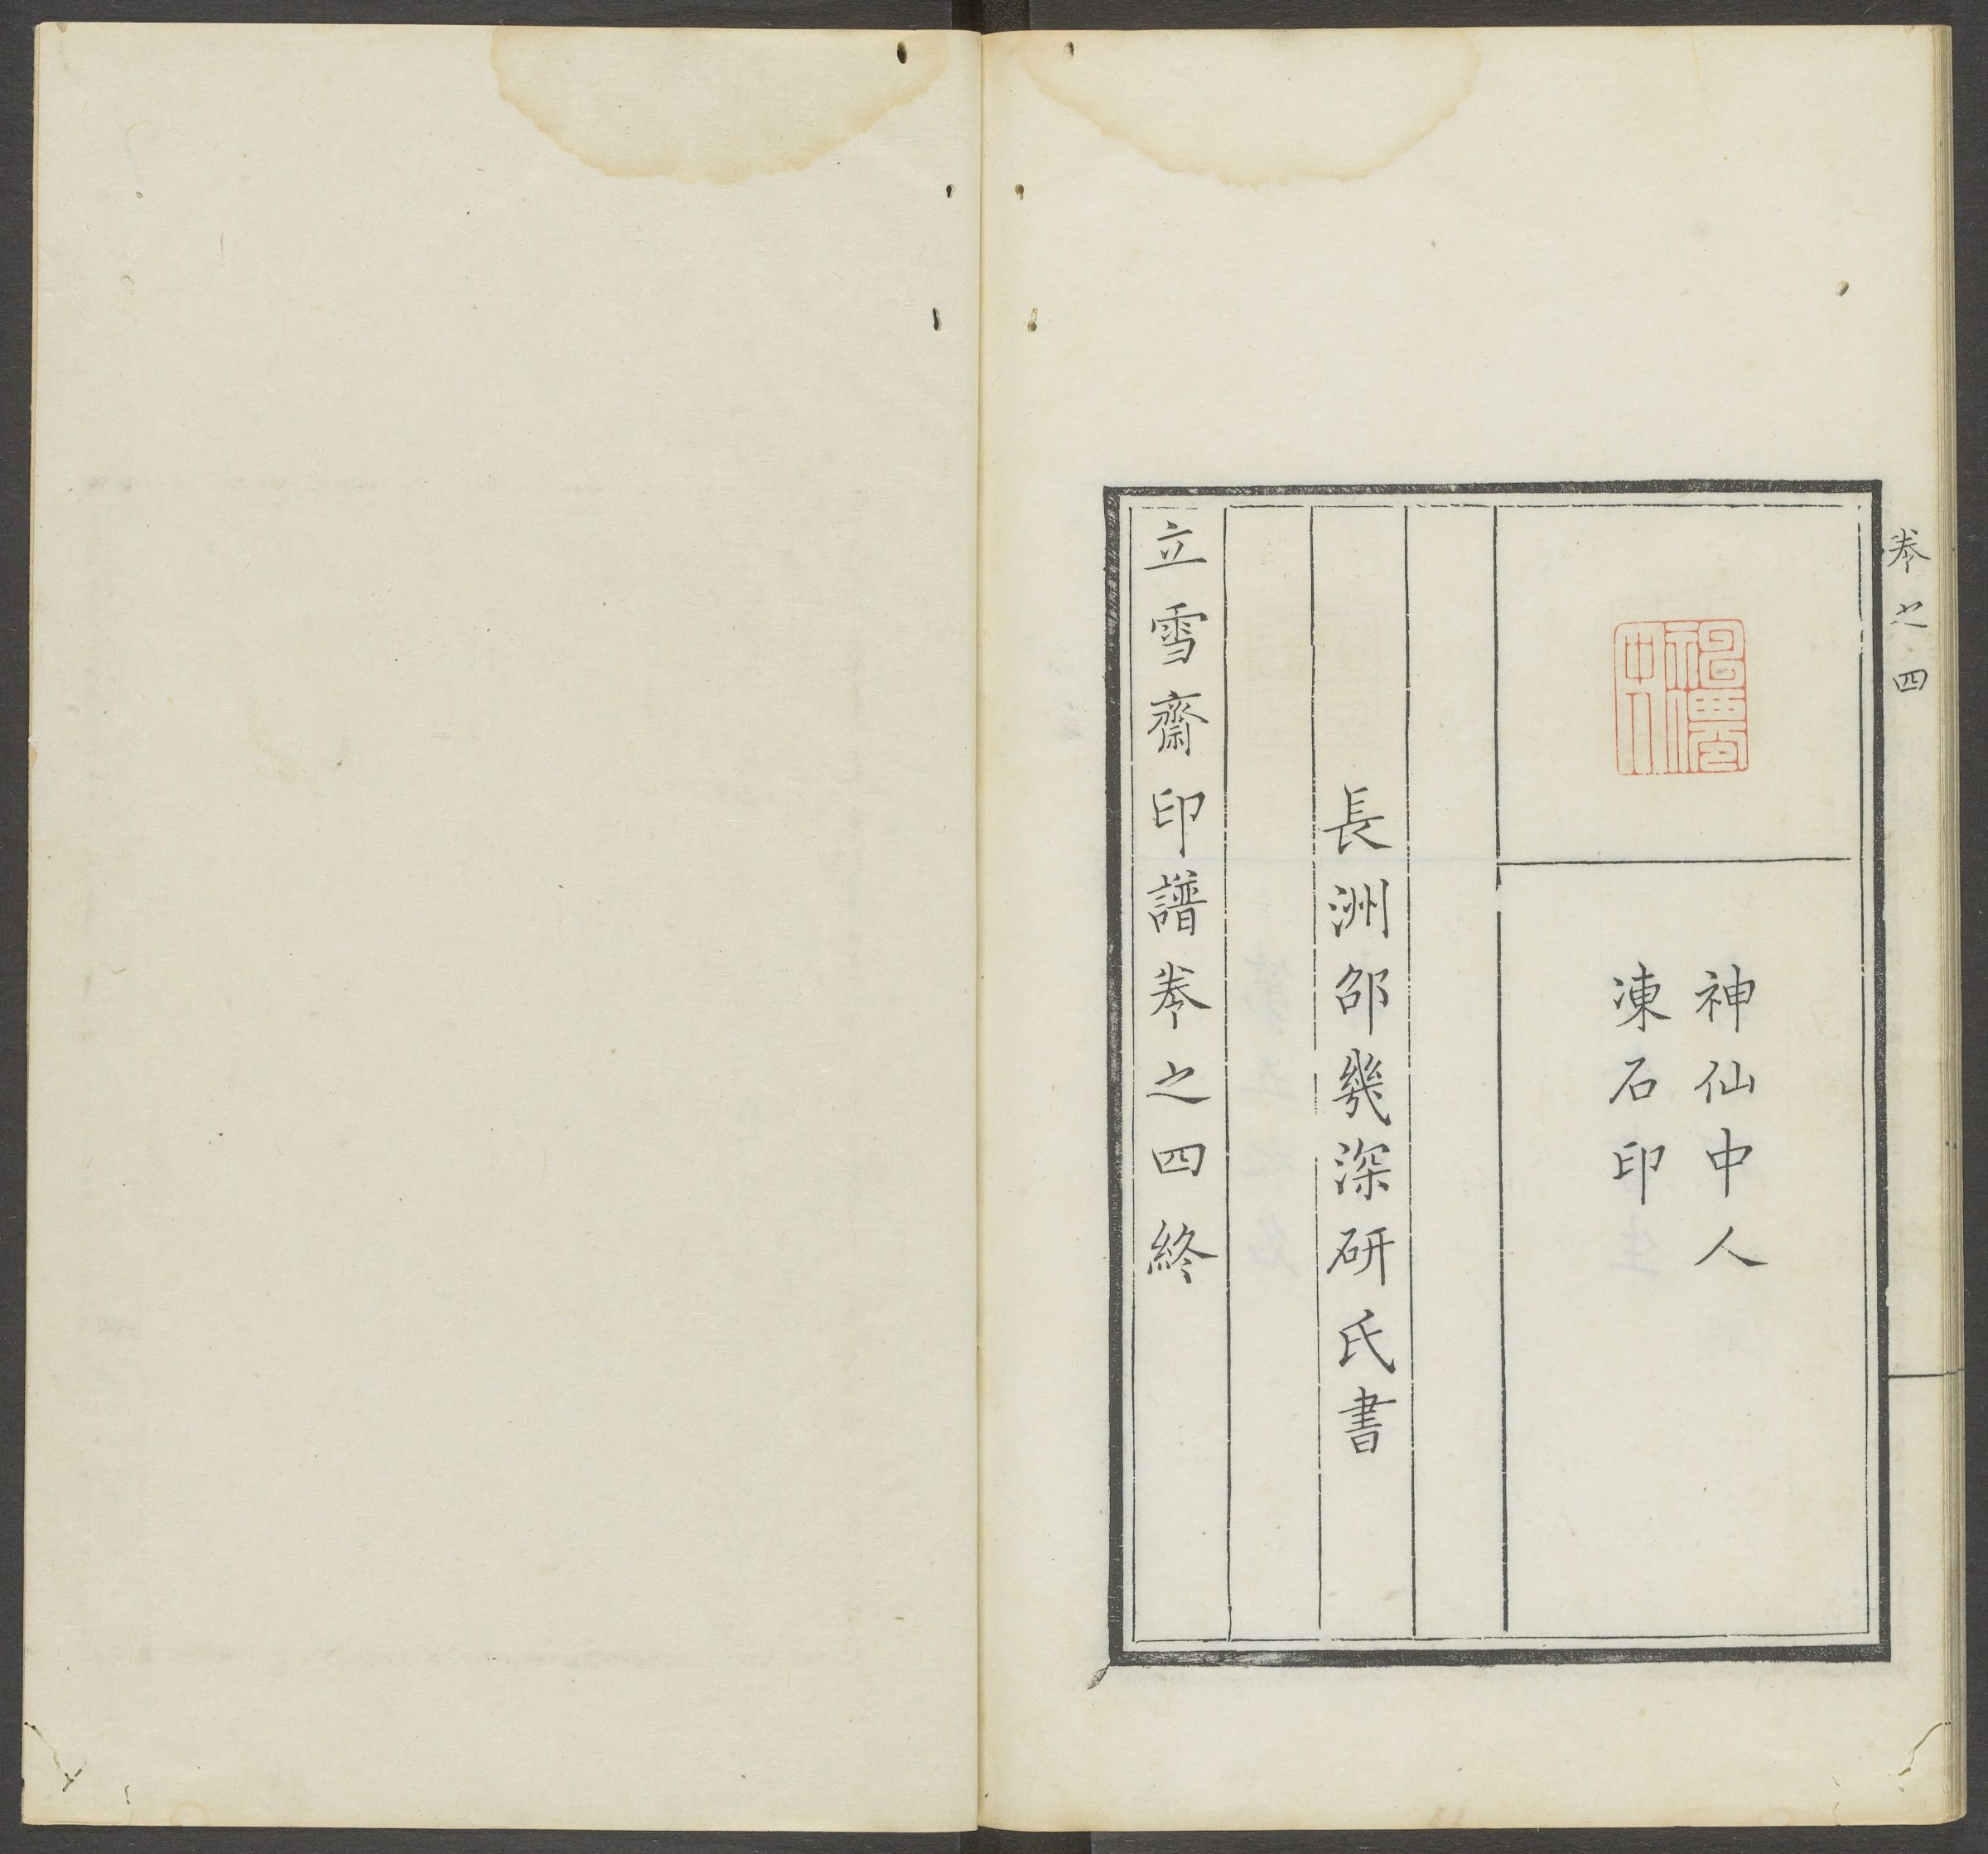 卷之四
神僊中人
神仙中人
凍石印
長洲邵幾深研氏書
立雪齋印譜卷之四終